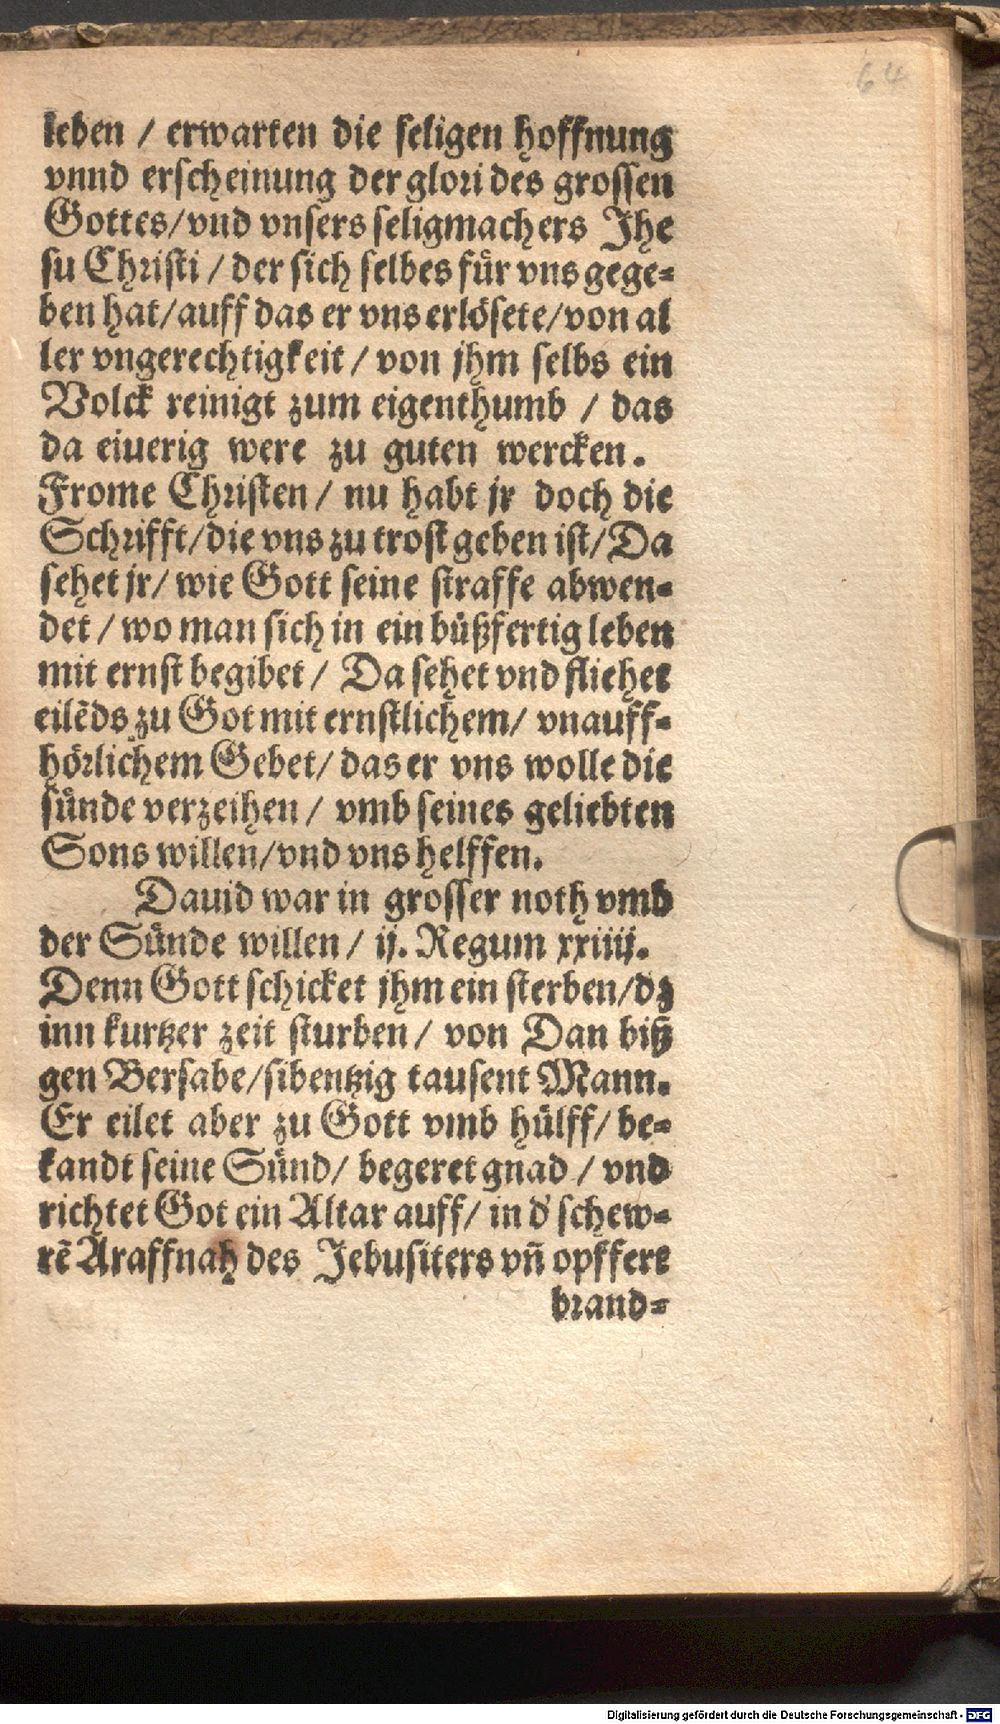 64
leben / erwarten die seligen hoffnung
vnnd erscheinung der glori des grossen
Gottes/vnd vnsers seligmachers Jhe
su Christi / der sich selbes für vns gege-
ben hat/auff das er vns erlösete/von al
ler vngerechtigkeit / von jhm selbs ein
Volck reinigt zum eigenthumb / das
da eiuerig were zu guten wercken.
Frome Christen/ nu habt jr doch die
Schrifft/die vns zu trost geben ist/Da
sehet jr/ wie Gott seine straffe abwen-
det / wo man sich in ein büßfertig leben
mit ernst begibet / Da sehet vnd fliehet
eilēds zu Got mit ernstlichem/ vnauff-
hörlichem Gebet/ das er vns wolle die
sünde verzeihen / vmb seines geliebten
Sons willen/vnd vns helffen.
Dauid war in grosser noth vmb
der Sünde willen / ij. Regum xxiiij.
Denn Gott schicket jhm ein sterben/dz
inn kurtzer zeit sturben / von Dan biß
gen Bersabe/sibentzig tausent Mann.
Er eilet aber zu Gott vmb hülff/ be-
kandt seine Sünd/ begeret gnad / vnd
richtet Got ein Altar auff/ in d' schew-
rē Araffnah des Jebusiters vñ opffert
brand-
Digitalisierung gefördert durch die Deutsche Forschungsgemeinschaft - DFG